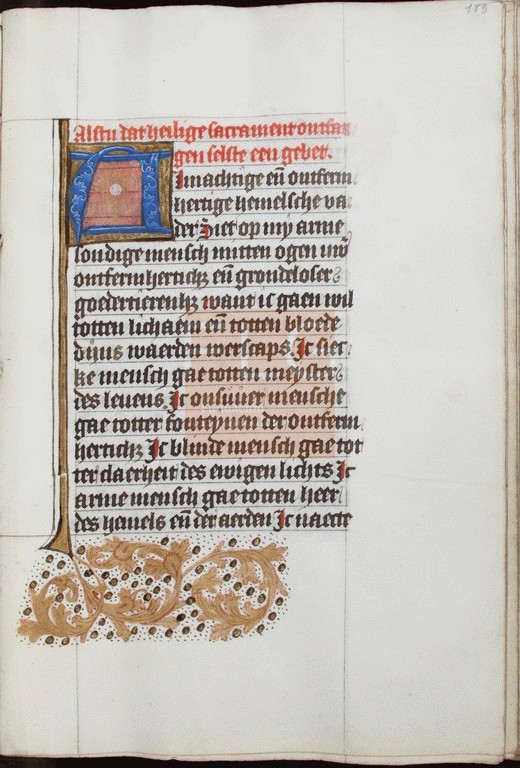 183
Alstu dat heilige sacrament ontfan
gen selste een gebet.
Almachtige eñ ontferm
hertige hemelsche va
der Ziet op my arme
sondige mensch mitten ogen
ontfermhertich eñ grondeloser
goedertieren want ic gaen wil
totten lichaem eñ totten bloede
dijns waerden werscaps. Ic siec
ke mensch gae totten meyster
des levens. Ic onsuver mensche
gae totter fonteynen der ontferm
hertich Ic blinde mensch gae tot
ter claerheit des ewigen lichts Ic
arme mensch gae totten heer
des hemels eñ der aerden Ic naecte